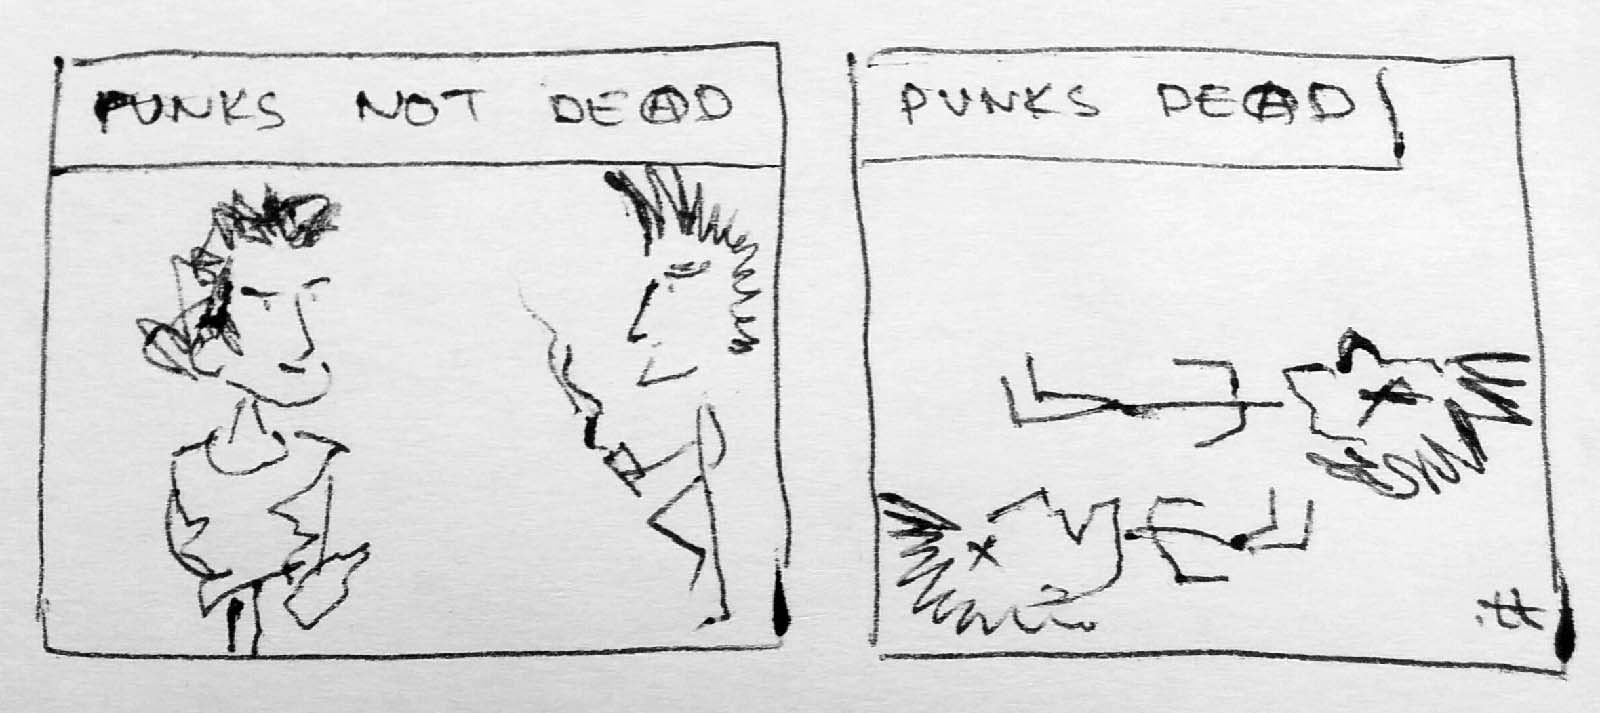 PUNKS NOT DEAD
PUNKS DEAD
.tt